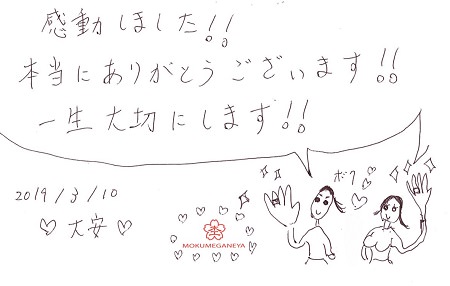 感動しました!!
本当にありがとうございます!!
一生大切にします!!
2019/3/10
♡大安♡
MOKUMEGANEYA
ボク